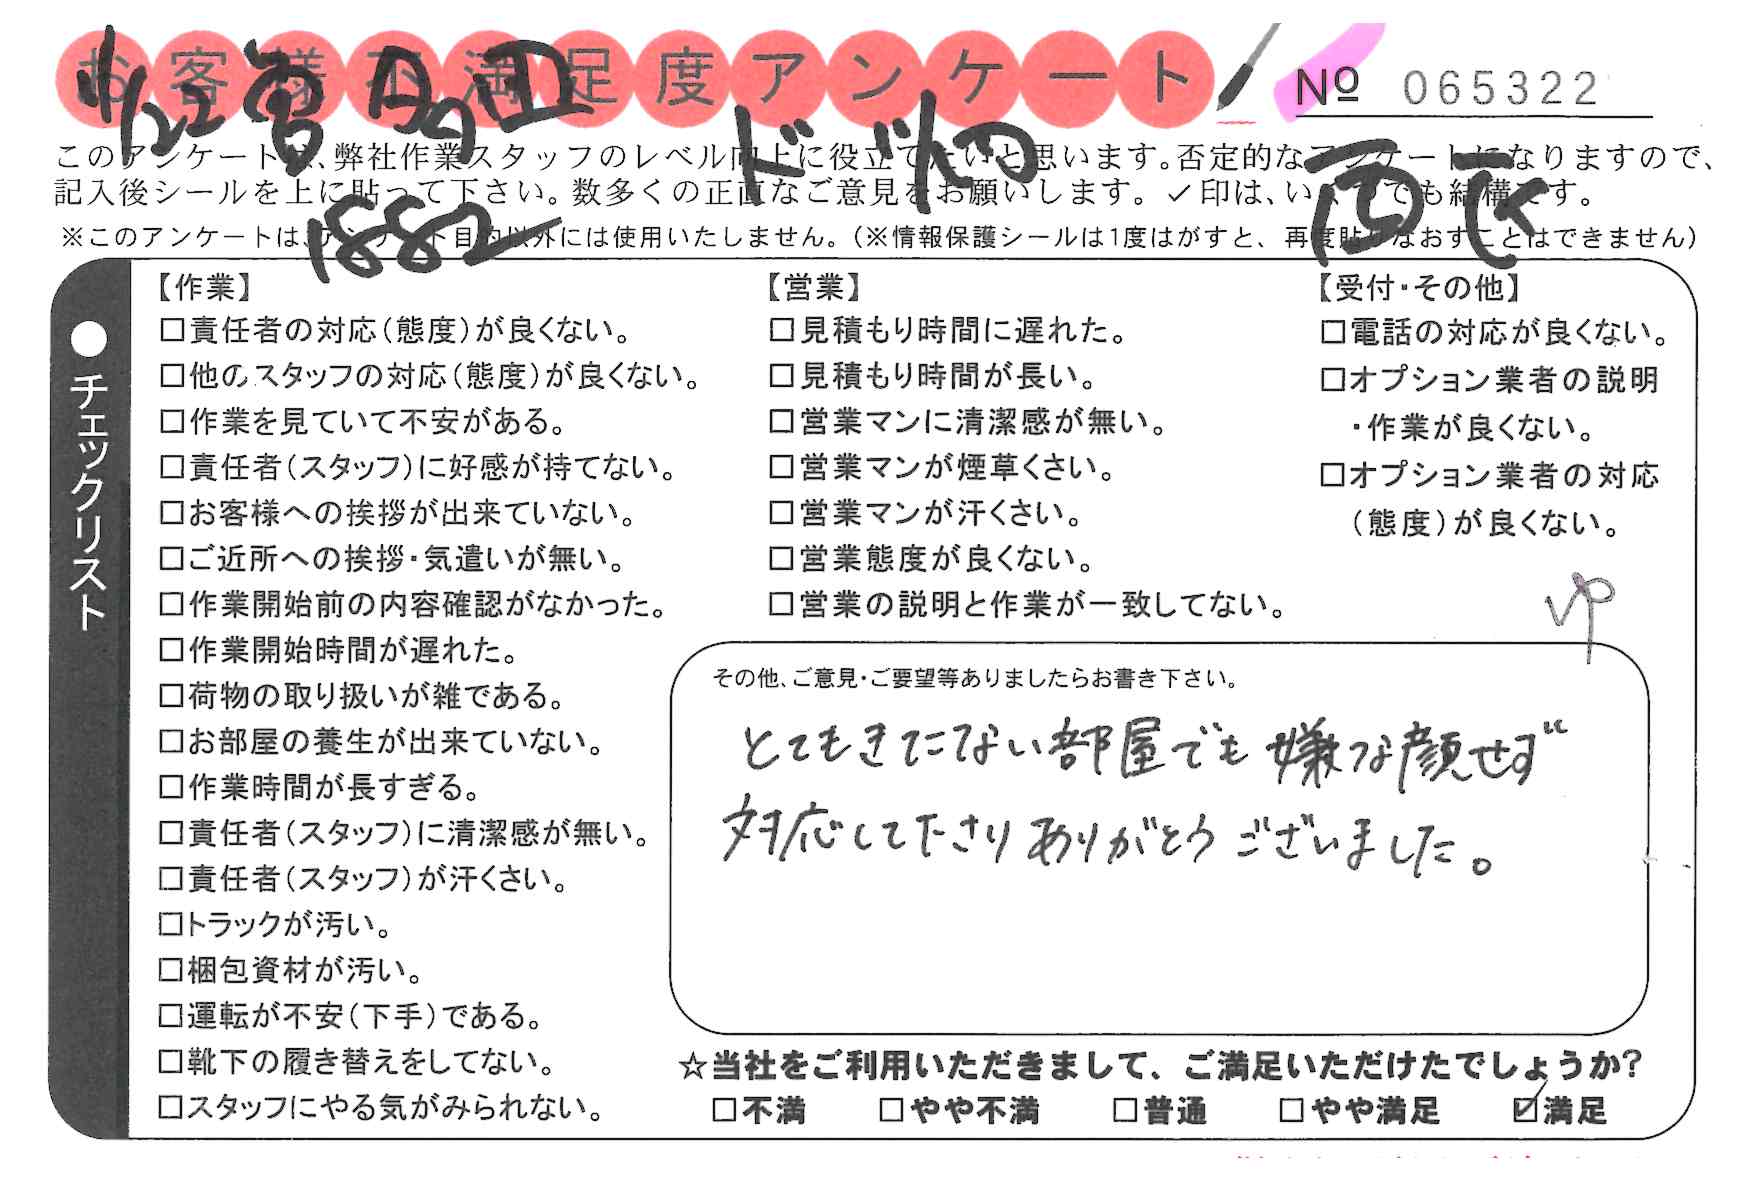 お客様不満足度アンケート
№ 065322
11/22
1882
このアンケートは、弊社作業スタッフのレベル向上に役立てたいと思います。否定的なアンケートになりますので、
記入後シールを上に貼って下さい。数多くの正直なご意見をお願いします。✓印は、いくつでも結構です。
※このアンケートは、アンケート目的以外には使用いたしません。(※情報保護シールは1度はがすと、再度貼りなおすことはできません)
●チェックリスト
【作業】
□責任者の対応(態度)が良くない。
□他のスタッフの対応(態度)が良くない。
□作業を見ていて不安がある。
□責任者(スタッフ)に好感が持てない。
□お客様への挨拶が出来ていない。
□ご近所への挨拶・気遣いが無い。
□作業開始前の内容確認がなかった。
□作業開始時間が遅れた。
□荷物の取り扱いが雑である。
□お部屋の養生が出来ていない。
□作業時間が長すぎる。
□責任者(スタッフ)に清潔感が無い。
□責任者(スタッフ)が汗くさい。
□トラックが汚い。
□梱包資材が汚い。
□運転が不安(下手)である。
□靴下の履き替えをしてない。
□スタッフにやる気がみられない。
【営業】
□見積もり時間に遅れた。
□見積もり時間が長い。
□営業マンに清潔感が無い。
□営業マンが煙草くさい。
□営業マンが汗くさい。
□営業態度が良くない。
□営業の説明と作業が一致してない。
【受付・その他】
□電話の対応が良くない。
□オプション業者の説明
・作業が良くない。
□オプション業者の対応
(態度)が良くない。
ゆ
その他、ご意見・ご要望等ありましたらお書き下さい。
とてもきたない部屋でも嫌な顔せず
対応して下さりありがとうございました。
☆当社をご利用いただきまして、ご満足いただけたでしょうか?
□不満 □やや不満 □普通 □やや満足 ☑満足